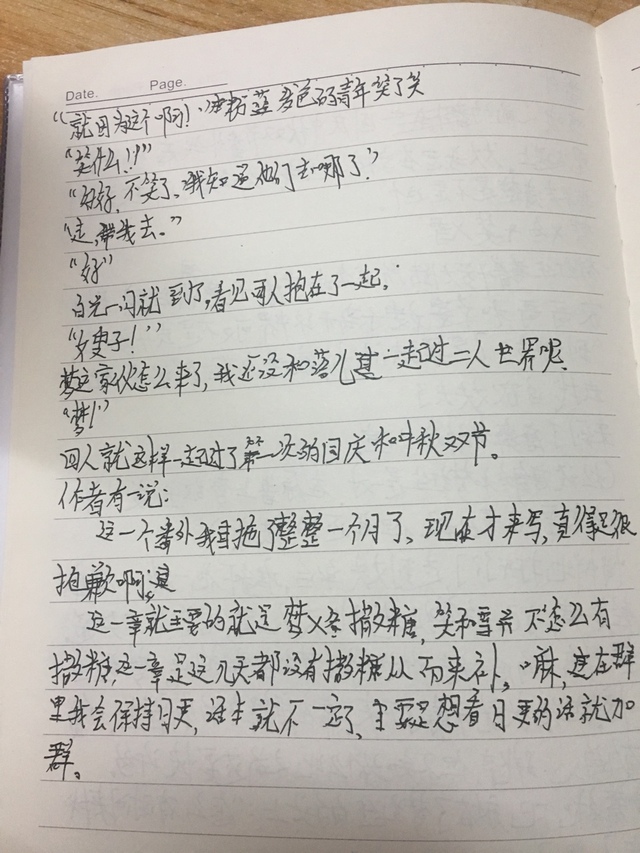 Date. Page.
“就因为这个啊!”粉蓝色的青年笑了笑
“笑什么!!”
“好好,不笑了,我知道他们去哪了。”
“走,带我去。”
“好”
白光一闪就到了,看见两人抱在了一起。
“嫂子!”
梦这家伙怎么来了,我还没和落儿一起过二人世界呢
“梦!”
四人就这样一起过了第一次的国庆和中秋双节。
作者有一说:
这一个番外我拖了整整一个月了,现在才来写,真得是很
抱歉啊,
这一章就主要的就是梦X 撒糖,笑和 不怎么有
撒糖,这一章是这几天都没有撒糖从而来补,嘛,是在群
里我会保持日更,话本就不一定了,主要是想看日更的话就加
群。